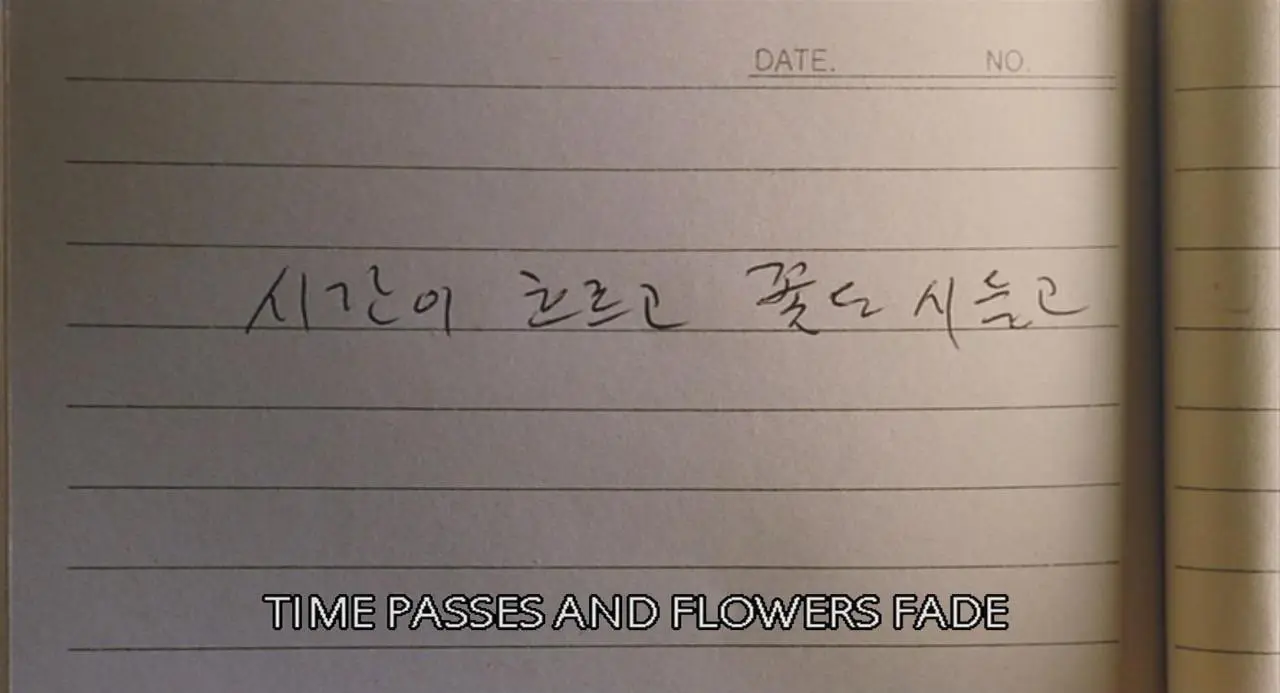 DATE. NO.
시간이 흐르고 꽃도 시들고
TIME PASSES AND FLOWERS FADE